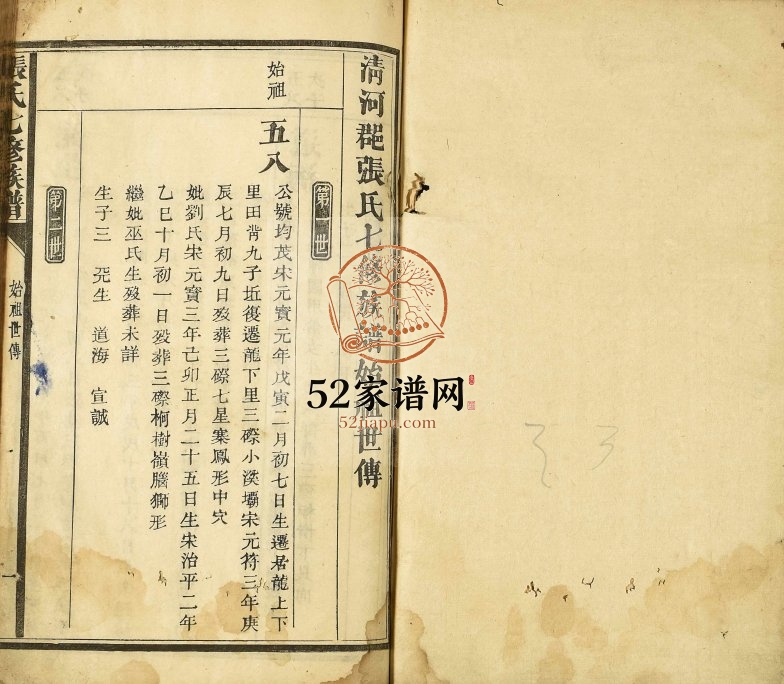 清河郡張氏七修族譜始祖世傳
第一世
始祖
五八
公號均茂宋元寶元年戊寅二月初七日生遷居龍上下
里田背九子坵復遷龍下里三磜小溪壩宋元符三年庚
辰七月初九日歿葬三磜七星寨鳳形中穴
妣劉氏宋元寶三年己卯正月二十五日生宋治平二年
乙巳十月初一日歿葬三磜桐樹嶺腦獅形
繼妣巫氏生歿葬未詳
生子三 発生 道海 宣誠
第二世
張氏七修族譜
始祖世傳
一
52家谱网
52jiapu.com